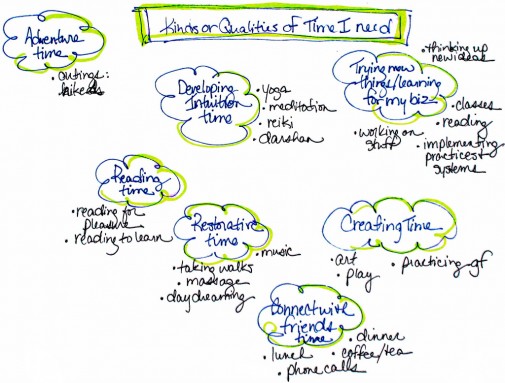 Kinds or Qualities of Time I need
Adventure
time
• outings:
hikes
Developing
Intuition
time
• yoga
• meditation
• reiki
• darshan
Trying new
things/learning
for my biz
• thinking up
new ideas
• classes
• reading
• implementing
practices &
systems
• working on
stuff
Reading
time
• reading for
pleasure
• reading to learn
Restorative
time
• music
• taking walks
• massage
• daydreaming
Creating Time
• art
• play
• practicing gf
Connect with
friends
time
• dinner
• lunch
• coffee/tea
• phone calls